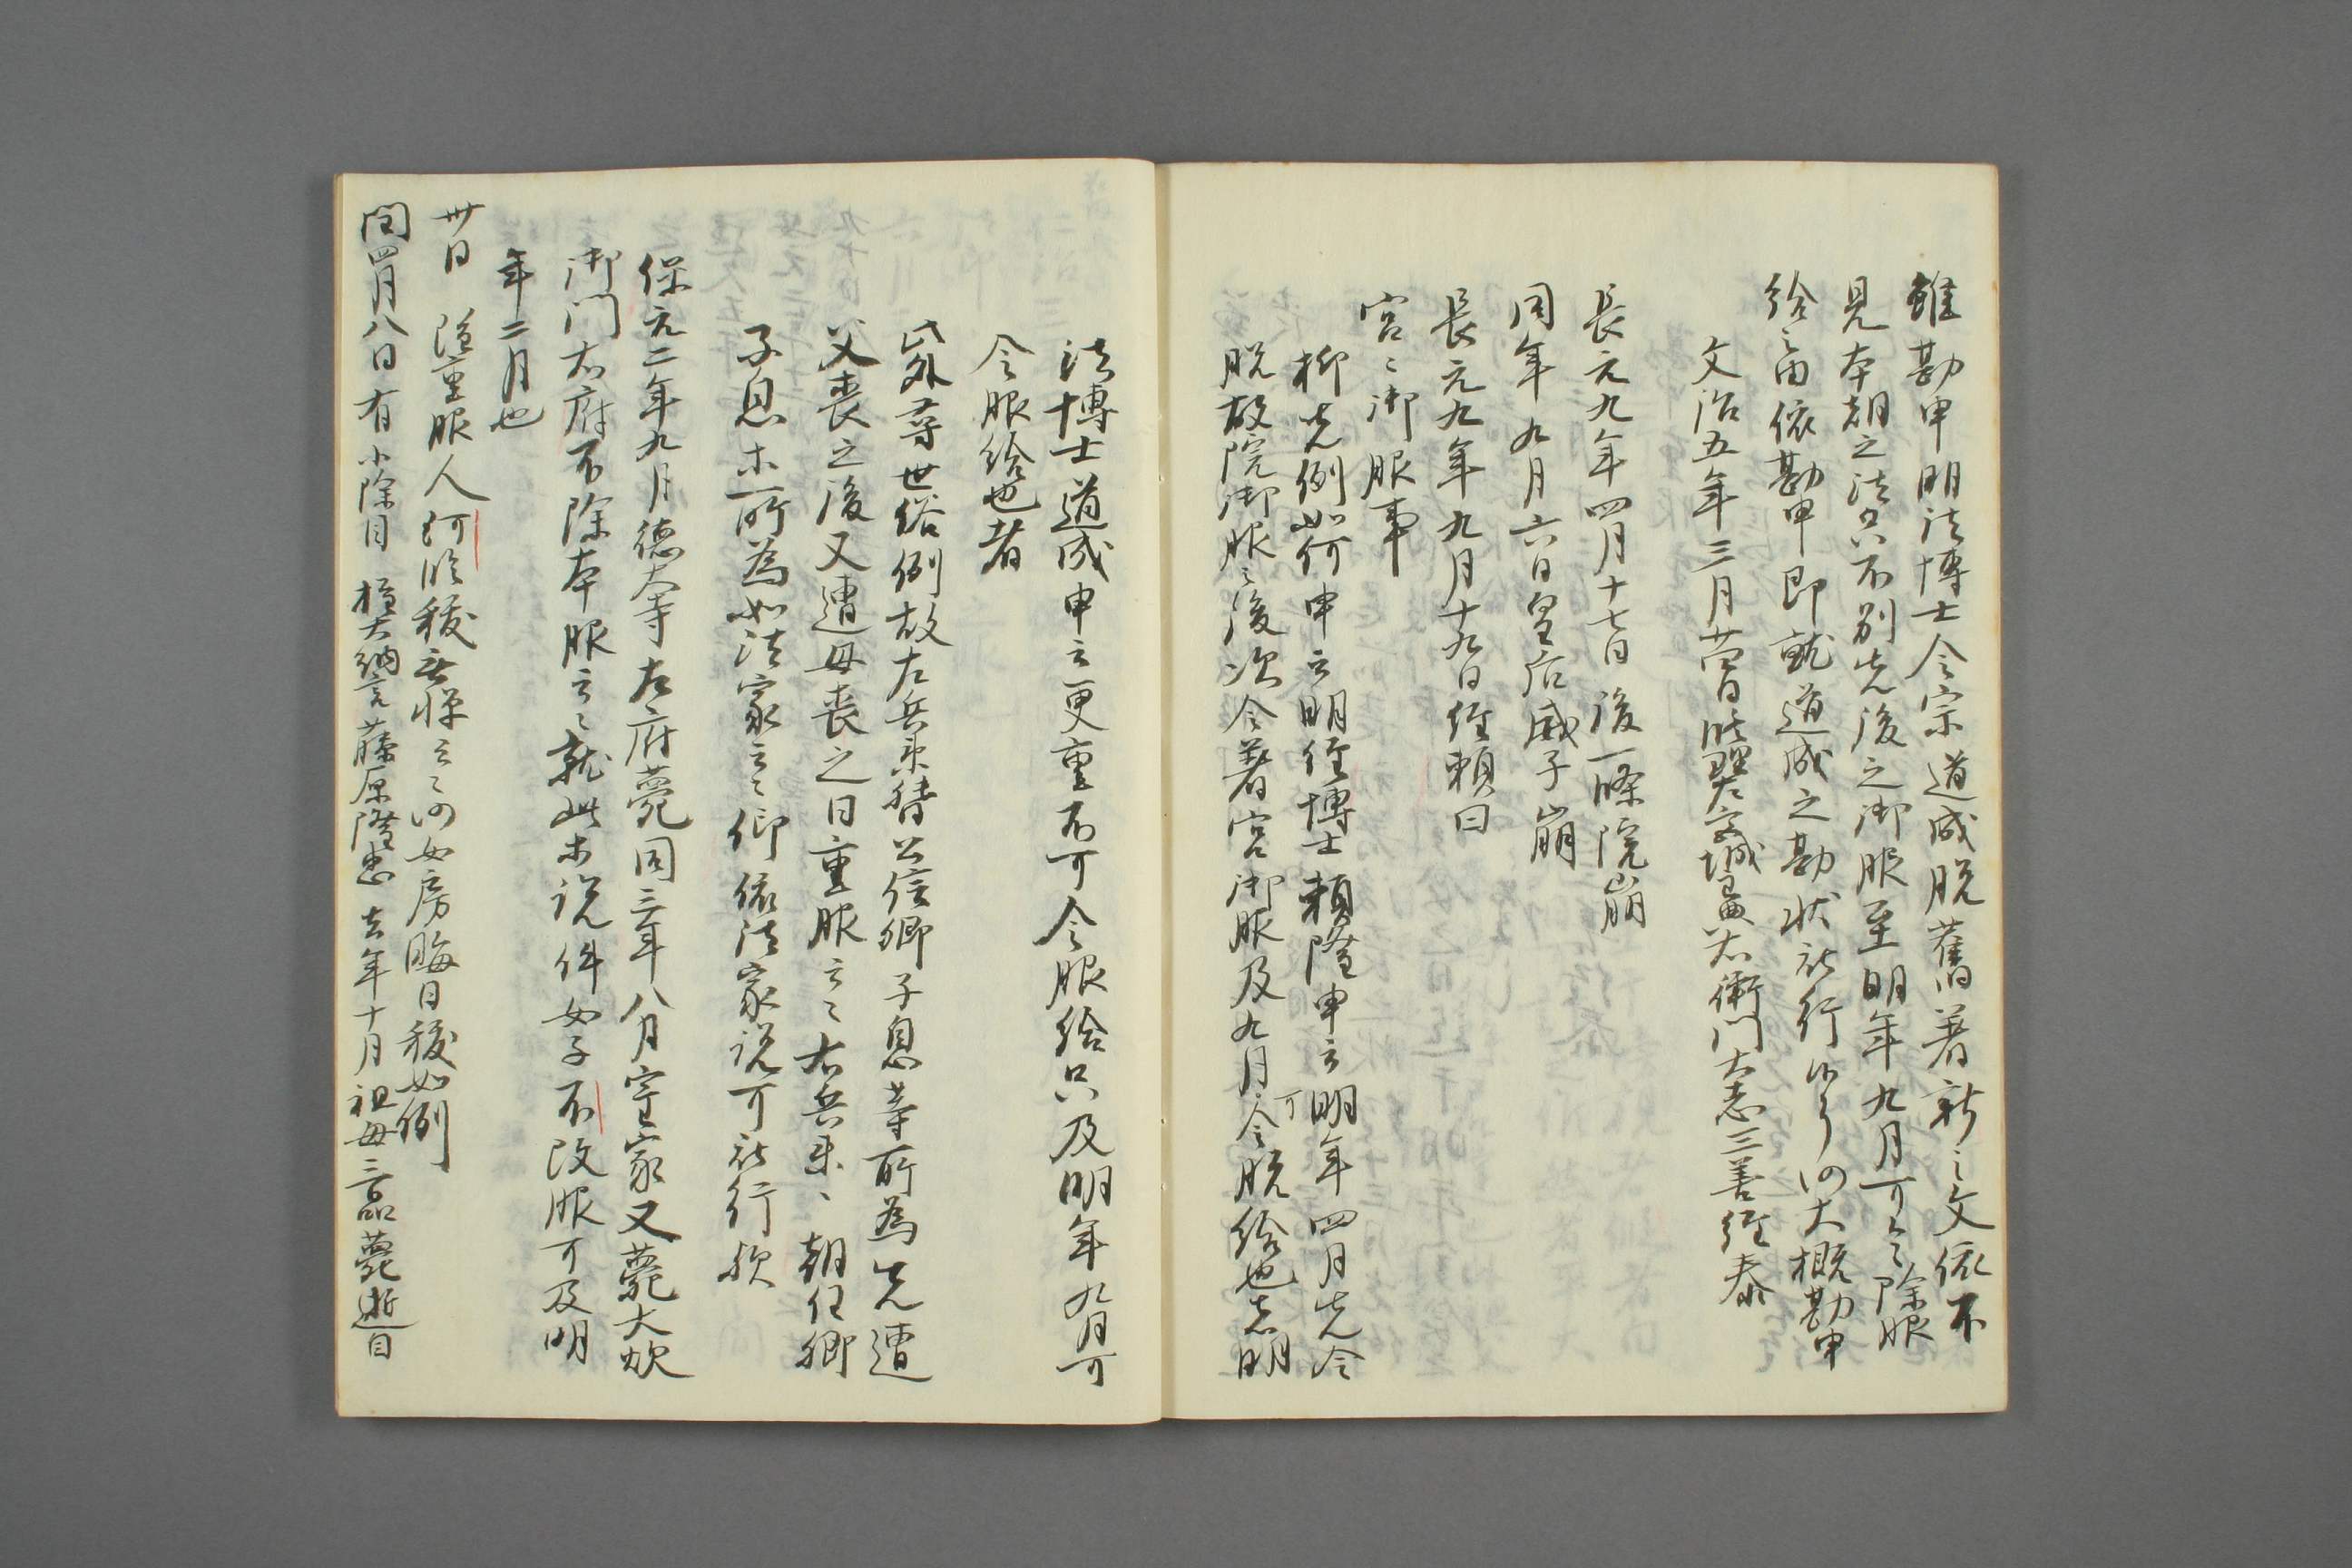 雖勘申明法博士令宗道成脱舊著新之文依不
見本朝之法只不別先後之御服至明年九月可令除服
給之由依勘申即就道成之勘状被行候了仍大概勘申
文治五年三月廿日 右衛門大志三善経泰
長元九年四月十七日後一條院崩
同年九月六日皇后威子崩
長元九年九月十九日経頼曰
宮々御服事
抑先例如何申云明経博士頼隆申云明年四月先令
脱故院御服之後次令著宮御服及九月可令脱給也者明
法博士道成申云更重不可令服給只及明年九月可
令服給也者
此外尋世俗例故左兵衛督公信卿子息等所為先遭
父喪之後又遭母喪之日重服云々右兵衛〻朝任卿
子息等所為如法家云々仰依法家説可被行歟
保元二年九月徳大寺左府薨同三年八月室家又薨大炊
御門右府不除本服云々就此等説件女子不改服可及明
年二月也
卅日 隨重服人河臨祓無憚云々仍女房晦日祓如例
閏四月八日有小除目 権大納言藤原隆忠去年十月祖母三品薨逝自